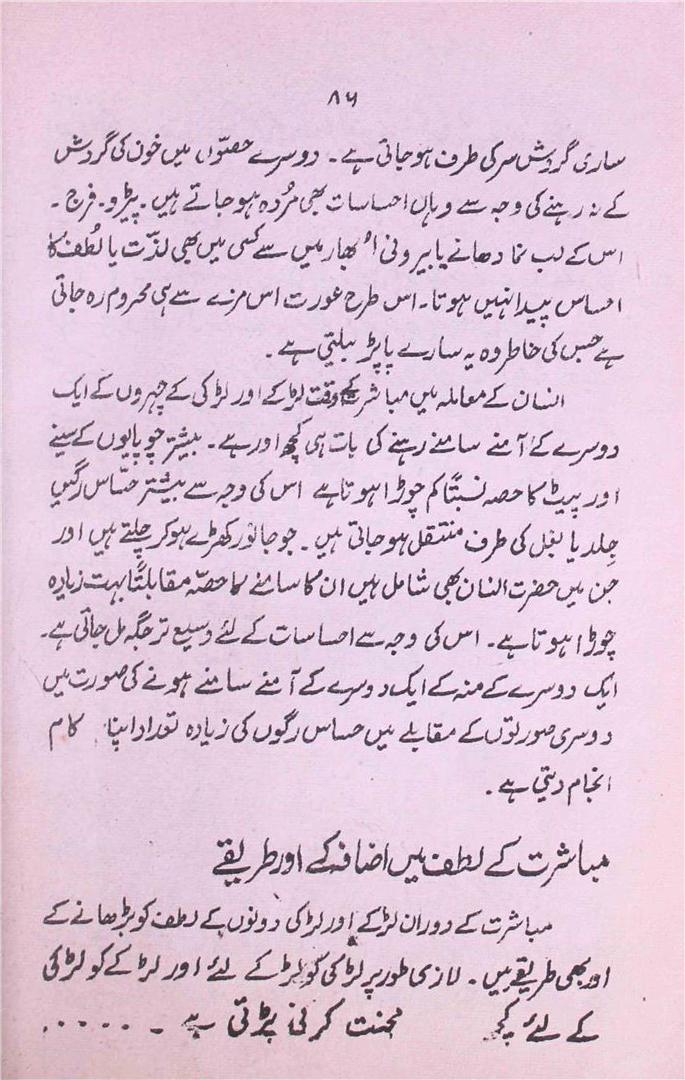 ۸۵
ساری گردش سر کی طرف ہو جاتی ہے۔ دوسرے حصّوں میں خون کی گردش
کے نہ رہنے کی وجہ سے وہاں احساسات بھی مُردہ ہو جاتے ہیں۔ پیڑو۔ فرج۔
اس کے لب نما دھانے یا بیرونی اُبھار میں سے کسی میں بھی لذّت یا لُطف کا
احساس پیدا نہیں ہوتا۔ اس طرح عورت اس مزے سے ہی محروم رہ جاتی
ہے جس کی خاطر وہ یہ سارے پاپڑ بیلتی ہے۔
انسان کے معاملہ میں مباشرت کے وقت لڑکے اور لڑکی کے چہروں کے ایک
دوسرے کے آمنے سامنے رہنے کی بات ہی کچھ اور ہے۔ بیشتر چوپایوں کے سینے
اور پیٹ کا حصہ نسبتاً کم چوڑا ہوتا ہے اس کی وجہ سے بیشتر حسّاس رگیں
جِلد یا بغل کی طرف منتقل ہو جاتی ہیں۔ جو جانور کھڑے ہو کر چلتے ہیں اور
جن میں حضرت انسان بھی شامل ہیں ان کا سامنے کا حصّہ مقابلتاً بہت زیادہ
چوڑا ہوتا ہے۔ اس کی وجہ سے احساسات کے لئے وسیع تر جگہ مل جاتی ہے۔
ایک دوسرے کے منہ کے ایک دوسرے کے آمنے سامنے ہونے کی صورت میں
دوسری صورتوں کے مقابلے میں حساس رگوں کی زیادہ تعداد اپنا کام
انجام دیتی ہے۔
مباشرت کے لطف میں اضافہ کے اور طریقے
مباشرت کے دوران لڑکے اور لڑکی دونوں کے لطف کو بڑھانے کے
اور بھی طریقے ہیں۔ لازمی طور پر لڑکی کو لڑکے کے لئے اور لڑکے کو لڑکی
کے لئے کچھ محنت کرنی پڑتی ہے۔ .....